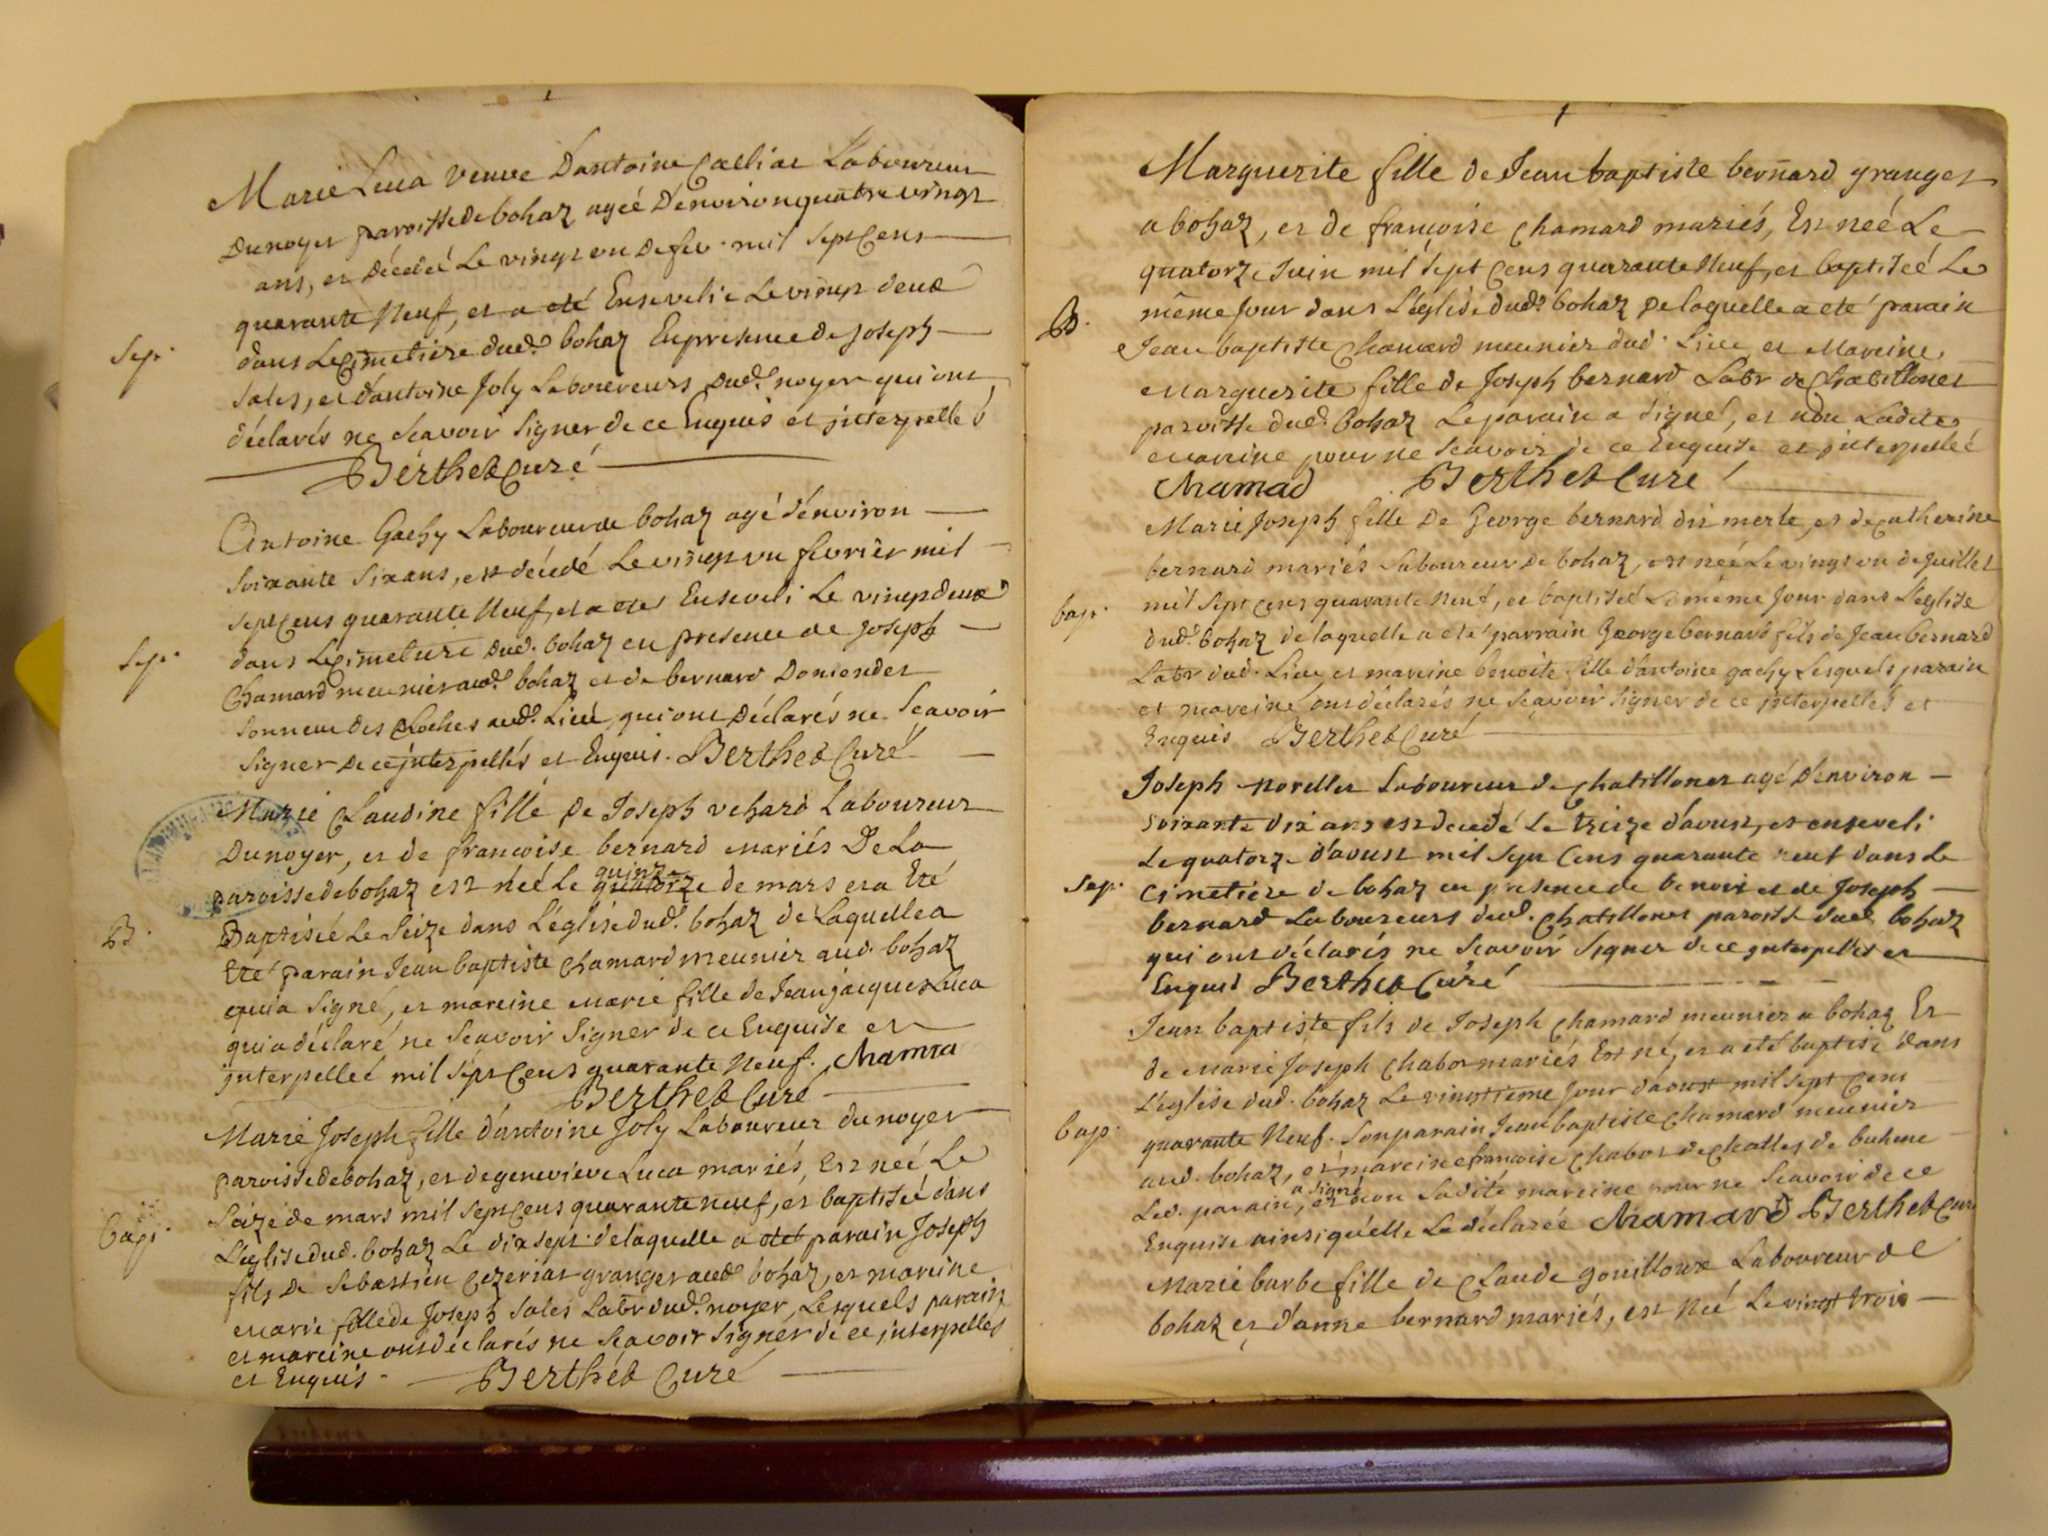 Marie Luca veuve D'antoine Calliat Laboureur
Dunoyer paroisse de bohaz agéé D'environ quatre vingt
ans, et décédéé Le vingt un De fev. mil sept Cens
quarante Neuf, et a eté Ensevelie Le vingt deux
Sep.
dans Le Cimetiere dud. bohaz En presence de Joseph
Sales, et d'antoine Joly Laboureurs Dud. noyer qui ont
déclarés ne Scavoir Signer de ce Enquis et interpellés
Berthet Curé
Antoine Gachy Laboureur de bohaz agé d'environ
Soixante Six ans, est décédé Le vingt un fevrier mil
Sept Cens quarante Neuf, et a eté Enseveli Le vingt deux
Sep.
dans Le Cimetiere Dud. bohaz en presence de Joseph
Chamard meunier aud. bohaz et de bernard Domender
Sonneur des Cloches aud. Lieu, qui ont Déclarés ne Scavoir
Signer De ce interpellés et Enquis. Berthet Curé
Marie Claudine fille De Joseph vehard Laboureur
Dunoyer, et de francoise bernard mariés De La
quinze
paroisse de bohaz est néé le quatorze de mars et a Eté
B.
Baptiséé Le Seize dans L'église dud. bohaz de Laquelle a
Eté parain Jean baptiste Chamard meunier aud. bohaz
qui a Signé, et mareine marie fille de Jean jacques Luca
qui a déclaré ne Scavoir Signer de ce Enquise et
interpelleé mil Sept Cens quarante Neuf. Chamra
Berthet Curé
Marie Joseph fille d'antoine Joly Laboureur du noyer
paroisse de bohaz, et de genevieve Luca mariés, Est neé Le
Seize de mars mil Sept Cens quarante neuf, et baptiséé dans
Bap.
L'église dud. bohaz Le dix sept. de laquelle a eté parain Joseph
fils De Sebastien Cezeriat granger aud. bohaz, et mareine
marie fille de Joseph Sales Labr dud. noyer, Lesquels parain
et mareine ont déclarés ne Scavoir Signer de ce interpelles
et Enquis. Berthet Curé
Marguerite fille de Jean baptiste bernard granger
a bohaz, et de francoise Chamard mariés, Est neé Le
quatorze Juin mil Sept Cens quarante Neuf, et baptiseé Le
même Jour dans L'église dud. bohaz De laquelle a eté parain
B.
Jean baptiste Chamard meunier dud. Lieu et Mareine
Marguerite fille de Joseph bernard Labr de Chatillonet
paroisse dud. bohaz Le parain a Signé, et non Ladite
mareine pour ne Scavoir de ce Enquise et interpelleé
Chamad Berthet Curé
Marie Joseph fille De George bernard dit merle, et de catherine
bernard mariés Laboureur De bohaz, est neé Le vingt un de Juillet
Bap.
mil Sept Cens quarante neuf, et baptiseé Le même Jour dans L'eglise
dud. bohaz de laquelle a eté parrain George bernard fils de Jean bernard
Labr dud. Lieu et mareine benoite fille d'antoine gachy Lesquels parain
et mareine ont déclarés ne Scavoir Signer de ce interpellés et
Enquis Berthet Curé
Joseph morellet Laboureur de Chatillonet agé d'environ
Soixante dix ans est decedé Le treize d'aoust, et enseveli
Le quatorze d'aoust mil Sept Cens quarante neuf dans Le
Sep.
Cimetiere de bohaz en presence de benoit et de Joseph
bernard Laboureurs dud. Chatillonet paroisse dud. bohaz
qui ont déclarés ne Scavoir Signer de ce interpellés et
Enquis Berthet Curé
Jean baptiste fils de Joseph Chamard meunier a bohaz Et
de Marie Joseph Chabot mariés Est né, et a eté baptisé dans
L'eglise dud. bohaz Le vingtieme Jour d'aoust mil Sept Cens
Bap.
quarante Neuf. Son parain Jean baptiste Chamard meunier
aud. bohaz, et mareine francoise Chabot de Challes de buhene
a signé
Led. parain, et non Ladite mareine pour ne Scavoir de ce
Enquise ainsi qu'elle Le déclarée Chamard Berthet Curé
Marie barbe fille de Claude gouilloux Laboureur de
bohaz et d'anne bernard mariés, est Neé Le vingt trois